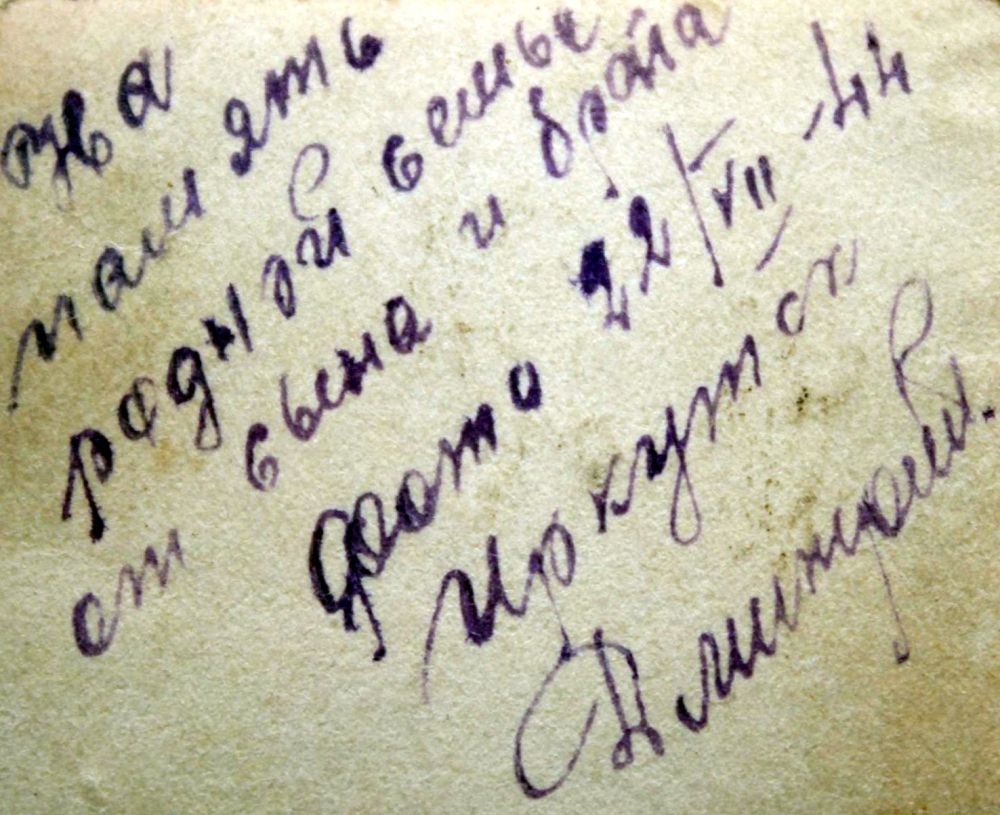 На
память
родной семье
от сына и брата
фото 22/VII-44
Иркутск